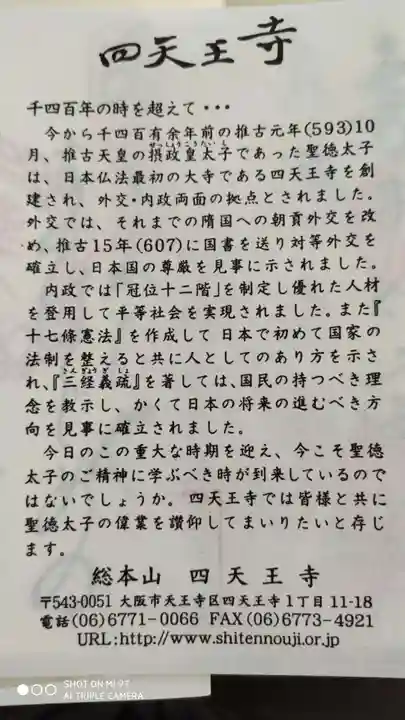 四天王寺
千四百年の時を超えて・・・
今から千四百有余年前の推古元年(593)10
せっしょうこうたいし
月、推古天皇の摂政皇太子であった聖徳太子
は、日本仏法最初の大寺である四天王寺を創
建され、外交・内政両面の拠点とされました。
外交では、それまでの隋国への朝貢外交を改
め、推古15年(607)に国書を送り対等外交を
確立し、日本国の尊厳を見事に示されました。
内政では「冠位十二階」を制定し優れた人材
を登用して平等社会を実現されました。また『
十七條憲法』を作成して 日本で初めて国家の
法制を整えると共に人としてのあり方を示さ
さんぎょうぎしょ
れ、『三経義疏』を著しては、国民の持つべき理
念を教示し、かくて日本の将来の進むべき方
向を見事に確立されました。
今日のこの重大な時期を迎え、今こそ聖徳
太子のご精神に学ぶべき時が到来しているので
はないでしょうか。四天王寺では皆様と共に
聖徳太子の偉業を讃仰してまいりたいと存じ
ます。
総本山 四天王寺
〒543-0051 大阪市天王寺区四天王寺1丁目11-18
電話(06)6771-0066 FAX(06)6773-4921
URL:http://www.shitennouji.or.jp
SHOT ON MI 9T
AI TRIPLE CAMERA